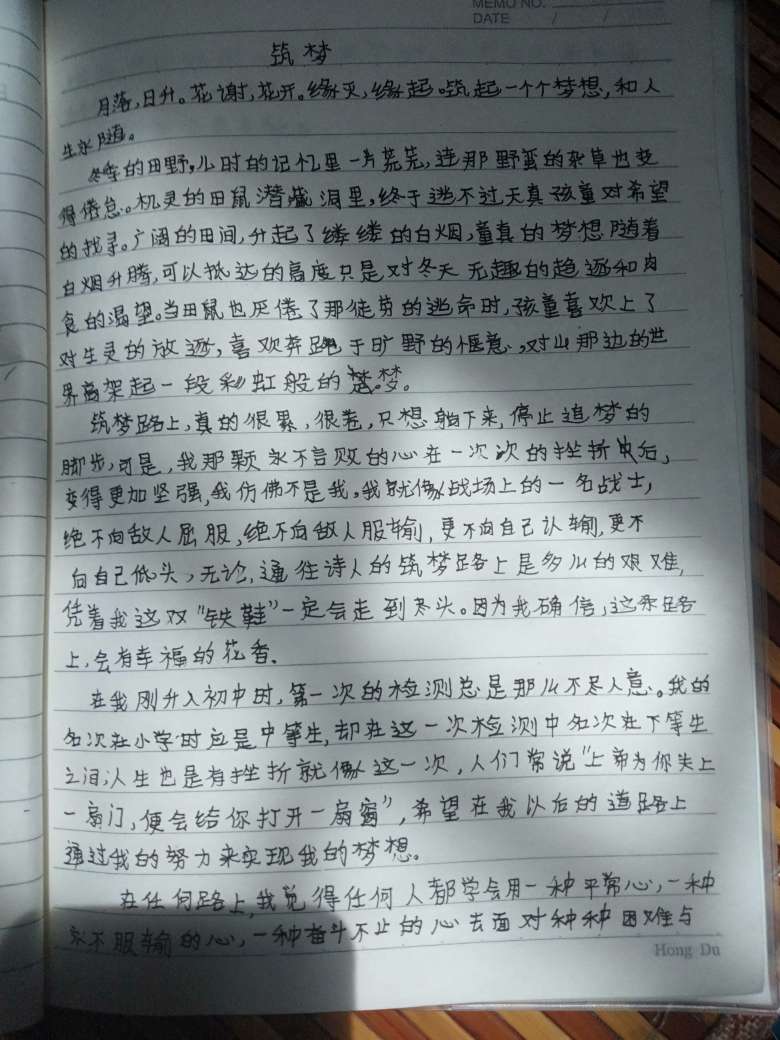 MEMO NO.
DATE / /
筑梦
月落,日升。花谢,花开。缘灭,缘起。筑起一个个梦想,和人
生永随。
冬季的田野,儿时的记忆里一片荒芜,连那野蛮的杂草也变
得倦怠。机灵的田鼠潜藏洞里,终于逃不过天真孩童对希望
的找寻。广阔的田间,升起了缕缕的白烟,童真的梦想随着
白烟升腾,可以抵达的高度只是对冬天无趣的追逐和肉
食的渴望。当田鼠也厌倦了那徒劳的逃命时,孩童喜欢上了
对生灵的放逐,喜欢奔跑于旷野的惬意,对山那边的世
界高架起一段彩虹般的梦。
筑梦路上,真的很累,很卷,只想躺下来,停止追梦的
脚步,可是,我那颗永不言败的心在一次次的挫折史后,
变得更加坚强,我仿佛不是我。我就像战场上的一名战士,
绝不向敌人屈服,绝不向敌人服输,更不向自己认输,更不
向自己低头,无论,通往诗人的筑梦路上是多么的艰难,
凭着我这双"铁鞋"一定会走到尽头。因为我确信,这条路
上,会有幸福的花香.
在我刚升入初中时,第一次的检测总是那么不尽人意。我的
名次在小学时应是中等生,却在这一次检测中名次在下等生
之间,人生也是有挫折就像这一次,人们常说"上帝为你失上
一扇门,便会给你打开一扇窗",希望在我以后的道路上
通过我的努力来实现我的梦想。
在任何路上,我觉得任何人都学会用一种平常心,一种
永不服输的心,一种奋斗不止的心去面对种种困难与
Hong Du